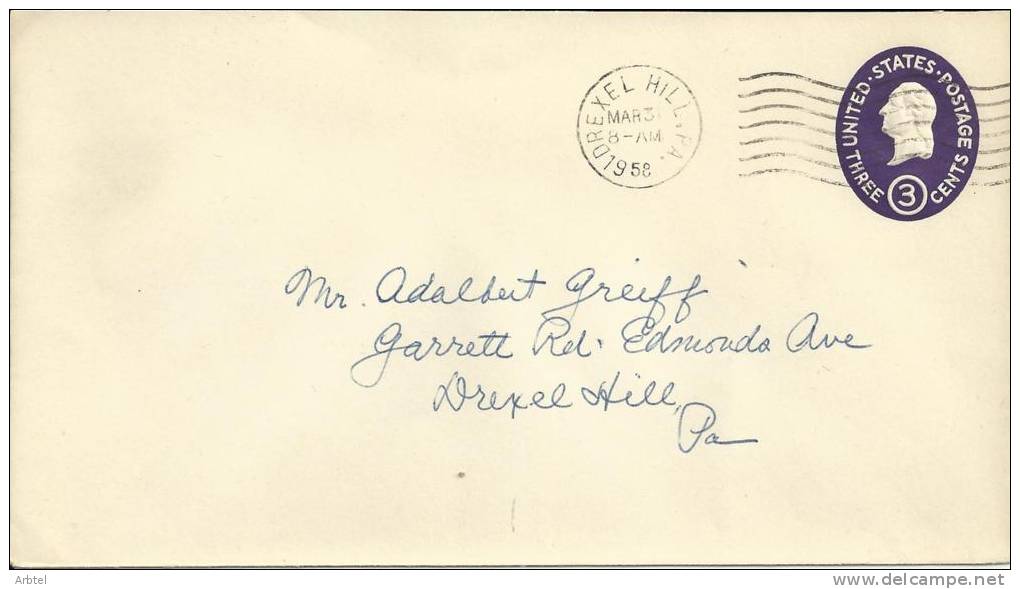 DREXEL HILL, PA.
MAR 31
8-AM
1958
UNITED · STATES · POSTAGE
THREE 3 CENTS
Mr. Adalbert Greiff
Garrett Rd. Edmonds Ave
Drexel Hill,
Pa
Arbtel
delcampe.net